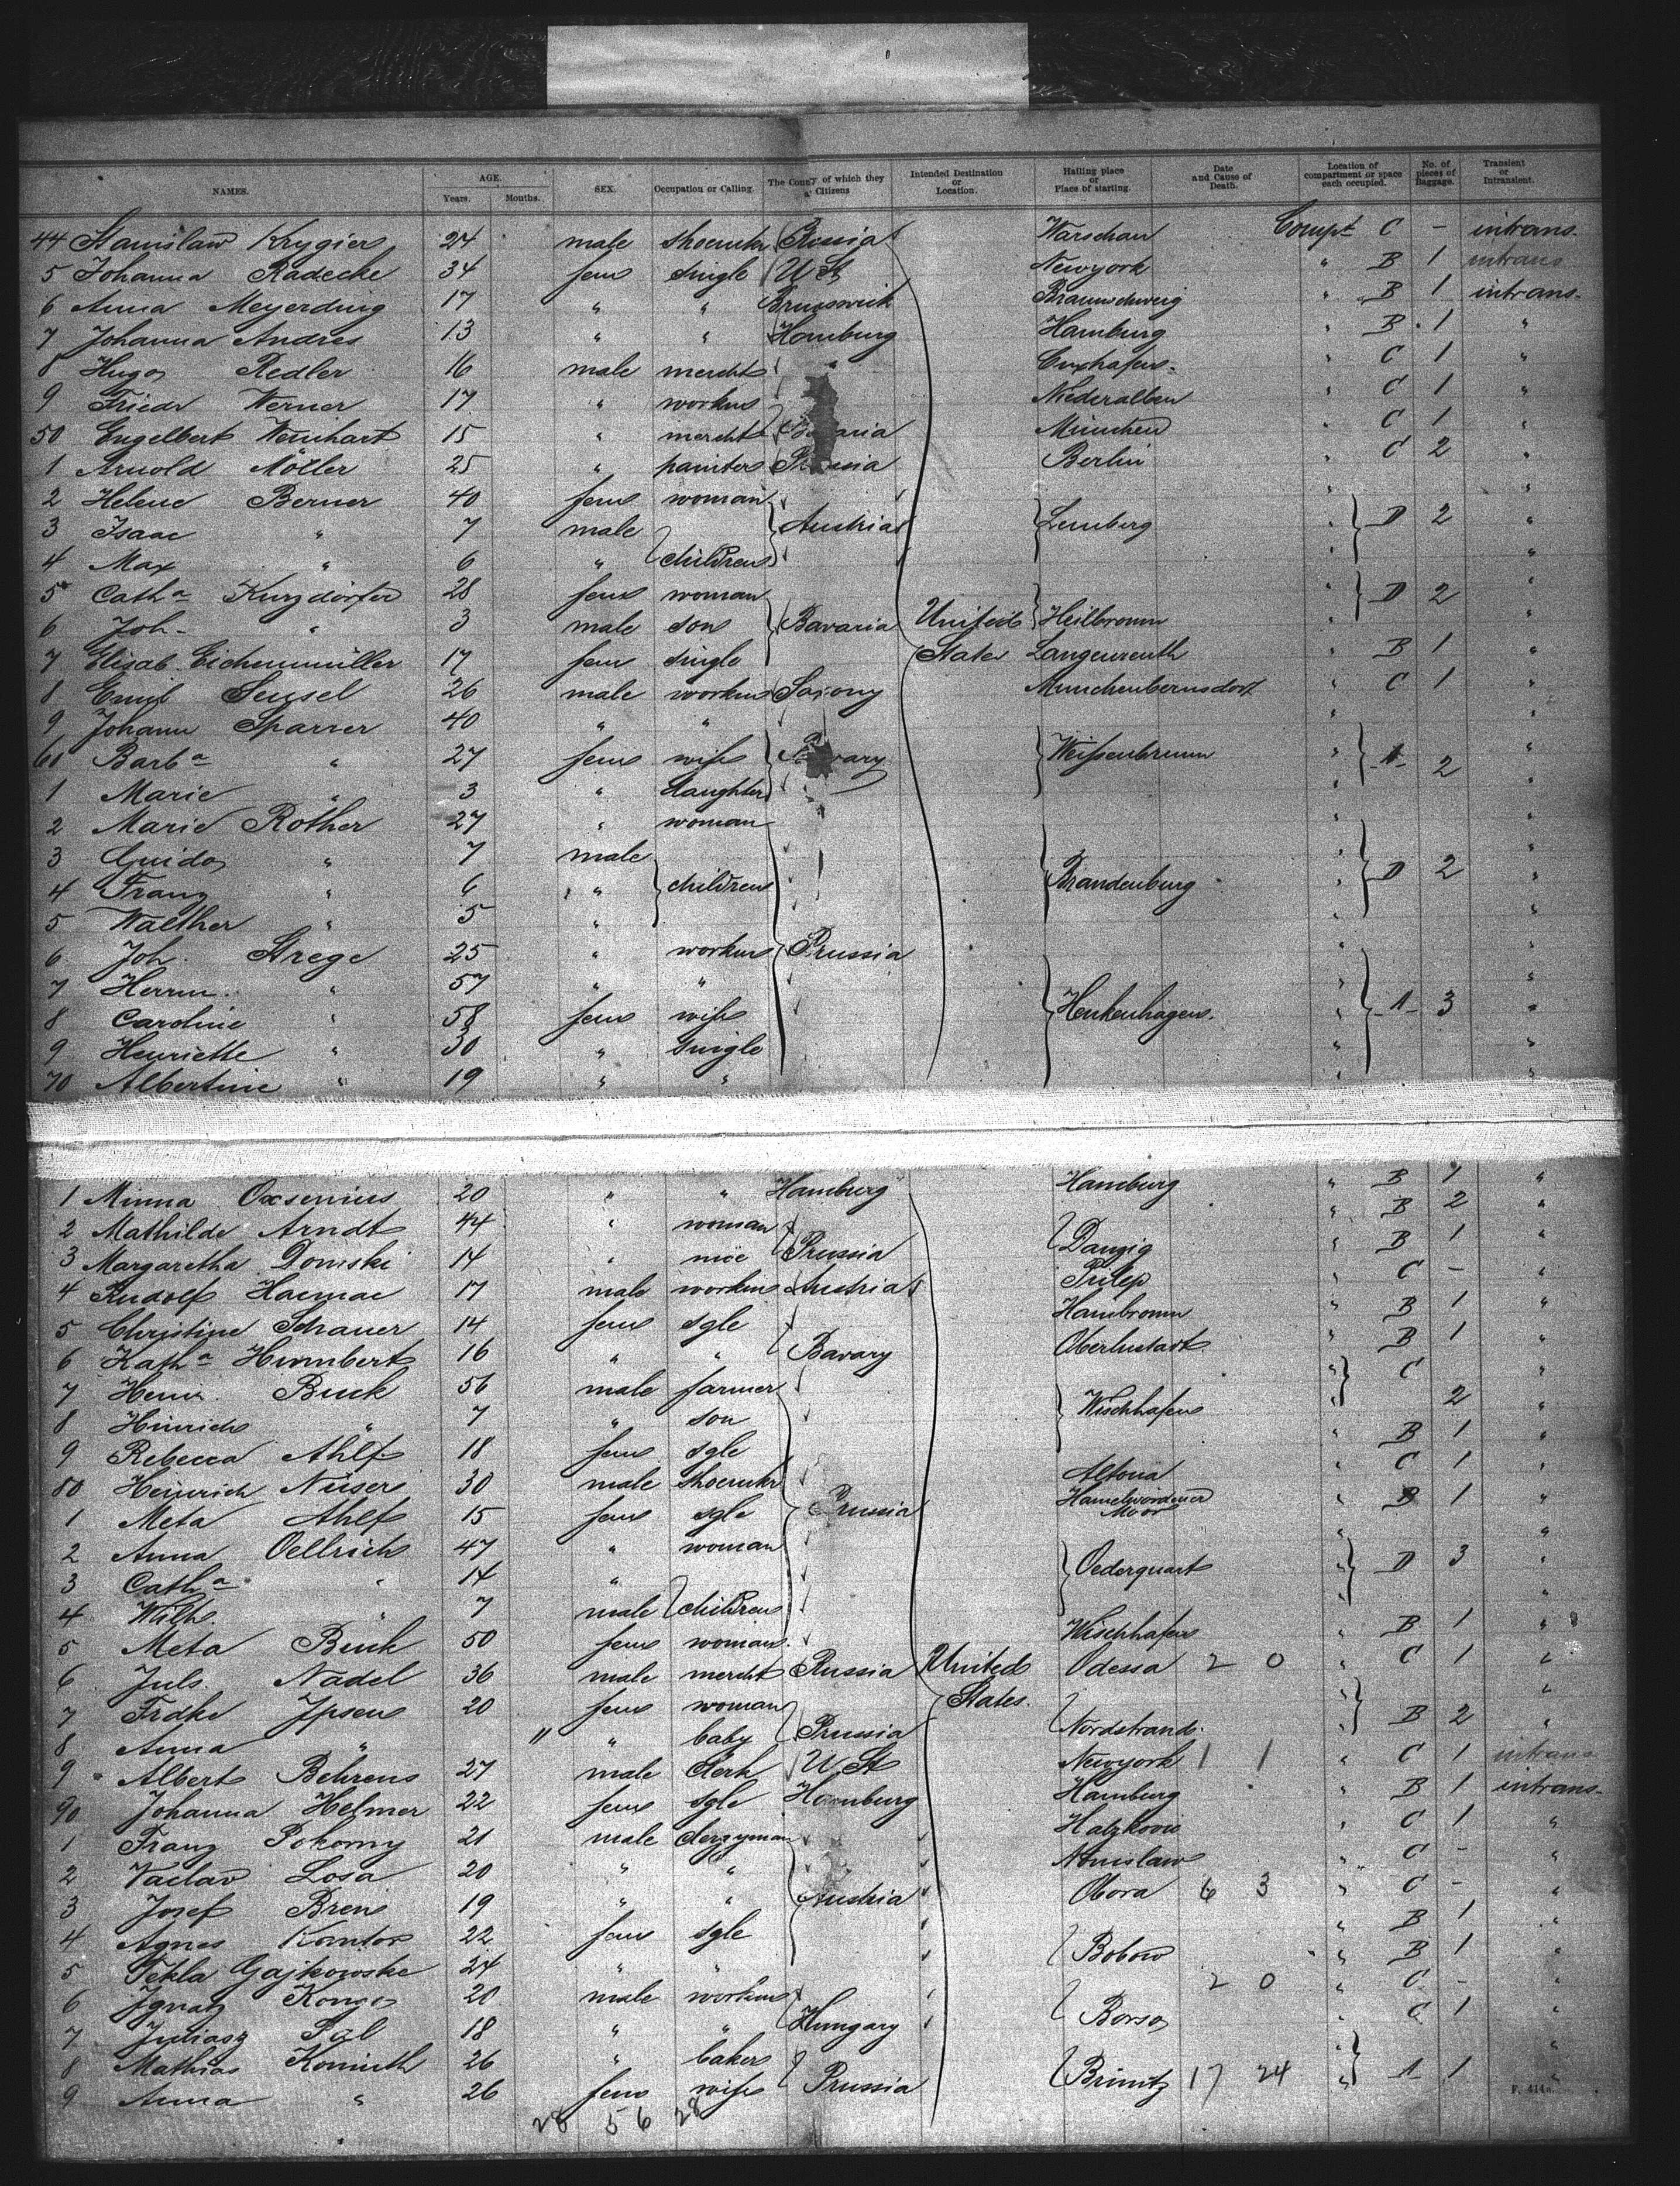 NAMES. AGE. Years. Months. SEX. Occupation or Calling. The Coun y of which they a Citizens Intended Destination or Location. Hailing place or Place of starting. Date and Cause of Death. Location of compartment or space each occupied. No. of pieces of Baggage. Transient or Intransient.
44 Stanislaw Krygier 24 male shoemkr Russia Warschau Compt C - intrans.
5 Johanna Radecke 34 fem single U St Newyork " B 1 intrans
6 Anna Meyerding 17 " " Brunswick Braunschweig " B 1 intrans.
7 Johanna Andres 13 " " Hamburg Hamburg " B 1 "
8 Hugo Redler 16 male mercht Cuxhafen " C 1 "
9 Friedr Werner 17 " workm Niederalben " C 1 "
50 Engelbert Weinhart 15 " mercht aria München " C 1 "
1 Arnold Möller 25 " painter Prussia Berlin " C 2 "
2 Helene Berner 40 fem woman " "
3 Isaac " 7 male Austria Lemberg " D 2 "
4 Max " 6 " children " "
5 Catha Kurzdörfer 28 fem woman " D 2 "
6 Joh. " 3 male son Bavaria United Heilbronn " "
7 Elisab Eichenmüller 17 fem single States Langenreuth " B 1 "
8 Emil Seusel 26 male workm Saxony Munchenbernsdorf " C 1 "
9 Johann Sparrer 40 " " " "
60 Barba " 27 fem wife vary Weissenbrunn " A 2 "
1 Marie " 3 " daughter " "
2 Marie Rother 27 " woman "
3 Guido " 7 male " "
4 Franz " 6 " children Brandenburg " D 2 "
5 Walther " 5 " " "
6 Joh. Strege 25 " workm Prussia " "
7 Herm. " 57 " " " "
8 Caroline " 58 fem wife Henkenhagen. " A 3 "
9 Henriette " 30 " single " "
70 Albertine " 19 " " " "
1 Minna Oxsenius 20 " " Hamburg Hamburg " B 1 "
2 Mathilde Arndt 44 " woman " B 2 "
3 Margaretha Domski 14 " niece Prussia Danzig " B 1 "
4 Rudolf Hacmac 17 male workm Austria Prilep " C - "
5 Christine Schauer 14 fem sgle Hambronn " B 1 "
6 Katha Humbert 16 " " Bavary Oberlustadt " B 1 "
7 Heinr. Buck 56 male farmer " C "
8 Hinrich " 7 " son Wischhafen " 2 "
9 Rebecca Ahlf 18 fem sgle B 1 "
80 Heinrich Nüser 30 male shoemkr Altona " C 1 "
1 Meta Ahlf 15 fem sgle Prussia Hamelwördener Moor " B 1 "
2 Anna Oellrich 47 " woman " "
3 Catha " 14 " Oederquart " D 3 "
4 Wilh " 7 male children " "
5 Meta Buck 50 fem woman Wischhafen " B 1 "
6 Juls. Nadel 36 male mercht Russia United Odessa 2 0 " C 1 "
7 Frdke Ipsen 20 fem woman States. " "
8 Anna " 11 " baby Prussia Nordstrand. " B 2 "
9 Albert Behrens 27 male clerk U St Newyork 1 1 " C 1 intrans
90 Johanna Helmer 22 fem sgle Hamburg Hamburg " B 1 intrans.
1 Franz Pokorny 21 male clergyman " C 1 "
2 Vaclav Losa 20 " " " C - "
3 Josef Bren 19 " " Austria Obora 6 3 " C - "
4 Agnes Kantor 22 fem sgle " B 1 "
5 Tekla Gajkowske 24 " " Bobow " B 1 "
6 Ignatz Kongo 20 male workm 2 0 " C - "
7 Juliasz Pal 18 " " Hungary Borso " C 1 "
8 Mathias Komieth 26 " baker " "
9 Anna " 26 fem wife Prussia Brinitz 17 24 " A 1 "
28 56 28
F. 414a.